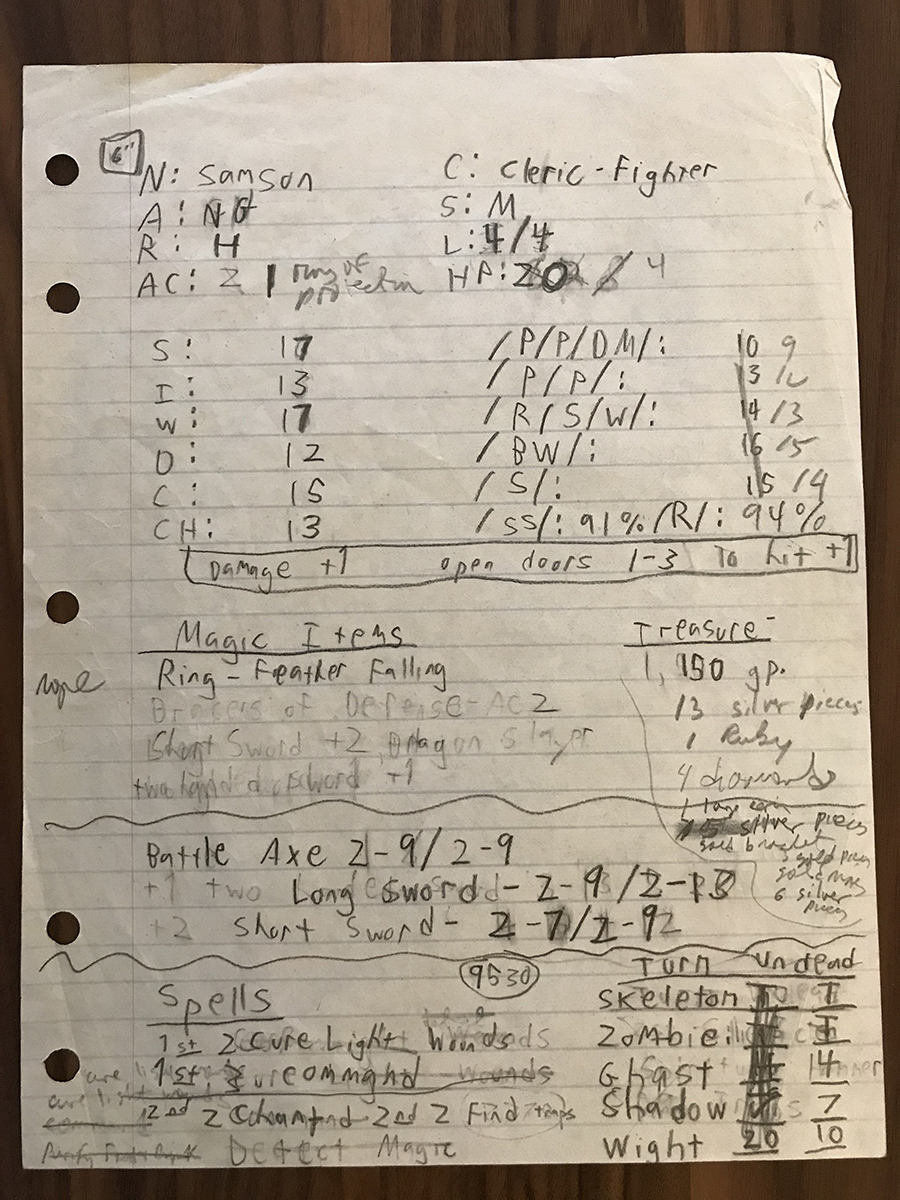 6"
N: Samson C: Cleric-Fighter
A: NG S: M
R: H L: 4/4
AC: 2 1 ring of protection HP: 20 4
S: 17 /P/P/DM/: 10 9
I: 13 /P/P/: 13 12
W: 17 /R/S/W/: 14 13
D: 12 /BW/: 16 15
C: 15 /S/: 15 14
CH: 13 /SS/: 91% /R/: 94%
Damage +1 open doors 1-3 To hit +1
Magic Items Treasure
Ring - Feather Falling 1,950 gp.
rope
Bracers of Defense-AC2 13 silver pieces
Short Sword +2, Dragon Slayer 1 Ruby
two handed sword +1 4 diamonds
silver pieces
gold bracelet
Battle Axe 2-9/2-9
3 gold pieces
+1 two Long Sword - 2-9/2-13
6 silver pieces
+2 Short Sword - 2-7/2-9
9530
Spells Turn Undead
Skeleton T T
1st 2 Cure Light Wounds Zombie T
1st command wounds Ghast 14
2nd 2 2nd 2 Find traps Shadow 7
Detect Magic Wight 20 10